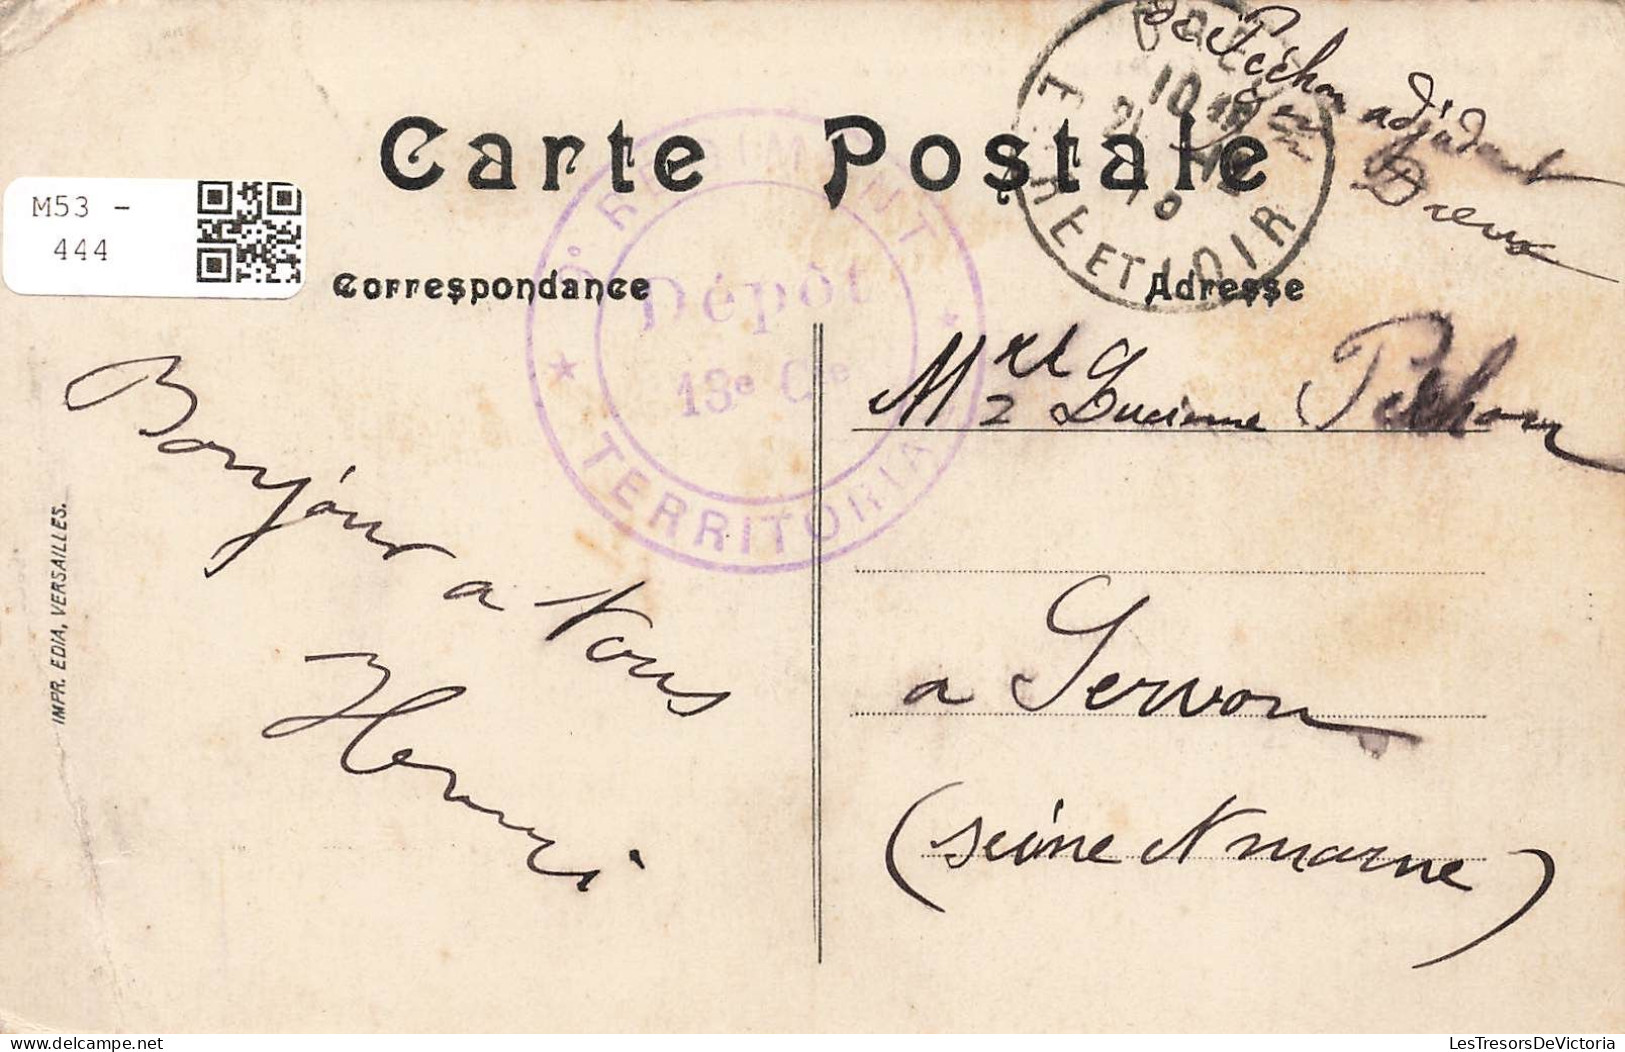 Péchou adjudant
Dreux
Carte Postale
M53 -
444
RÉGIMENT
TERRITORIAL
Dépôt
13e Cie
DREUX
10
21
EURE ET LOIR
Correspondance
Adresse
Melle Lucienne Péchou
Bonjour a Vous
Henri
a Servon
(Seine et marne)
IMPR. EDIA, VERSAILLES.
delcampe.net
LesTresorsDeVictoria